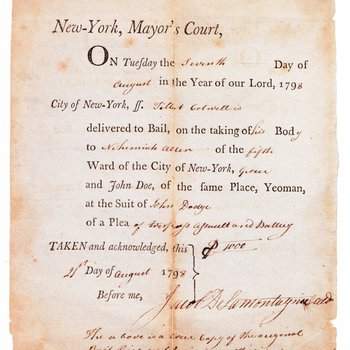 New-York, Mayor's Court,
ON Tuesday the Seventh Day of
August in the Year of our Lord, 1798
City of New-York, ss. Tillet Colwell is
delivered to Bail, on the taking of his Body
to Nehemiah Allen of the fifth
Ward of the City of New-York,
and John Doe, of the same Place, Yeoman,
at the Suit of John Dodge
of a Plea of Trespass assault and Battery
TAKEN and acknowledged, this
21st Day of August 1798
Before me, Jacob DeLamontagnie
The above is a true Copy of the original